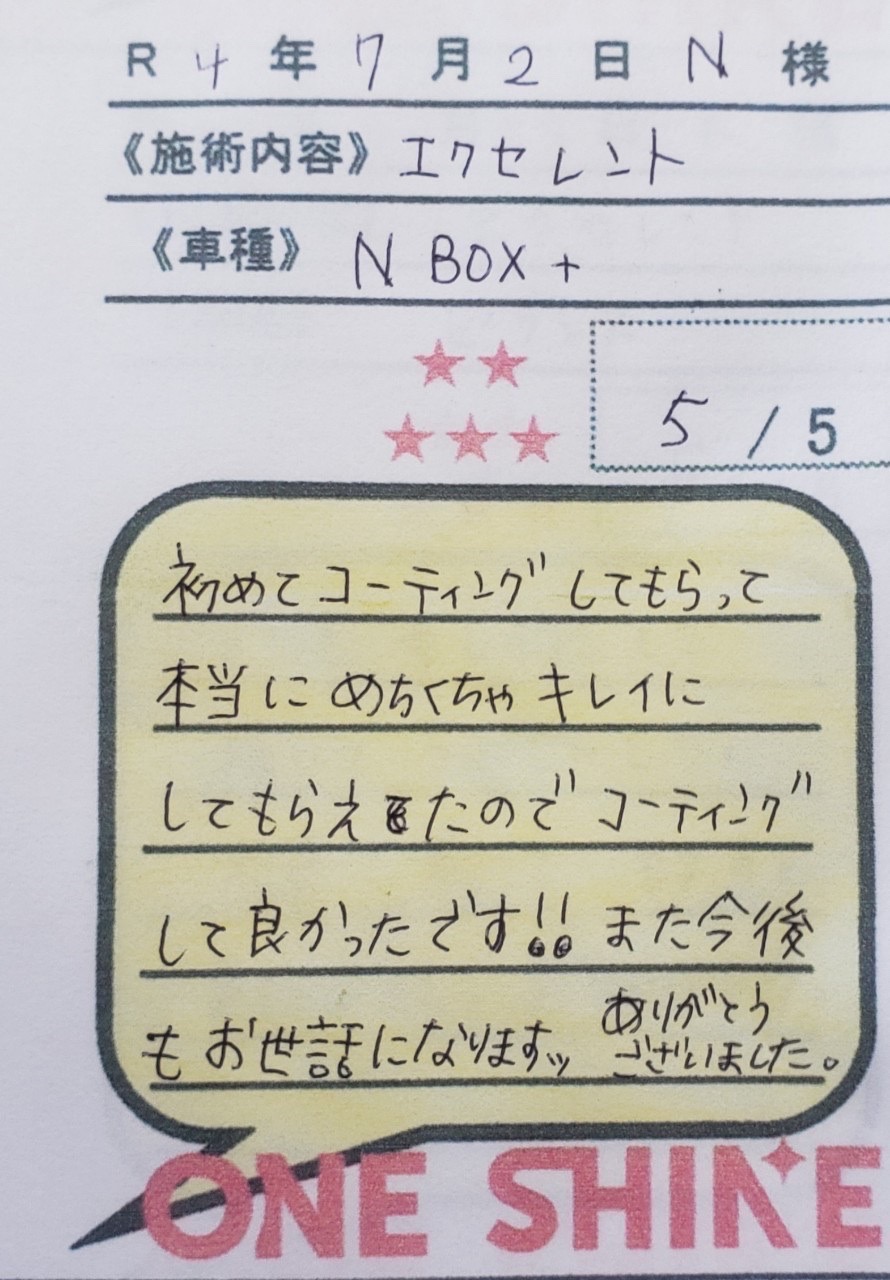 R 4 年 7 月 2 日 N 様
《施術内容》エクセレント
《車種》 N BOX +
★★
★★★
5 / 5
初めてコーティングしてもらって
本当に めちくちゃ キレイに
してもらえたので コーティング
して良かったです!! また今後
もお世話になりますッ ありがとう
ございました。
ONE SHINE